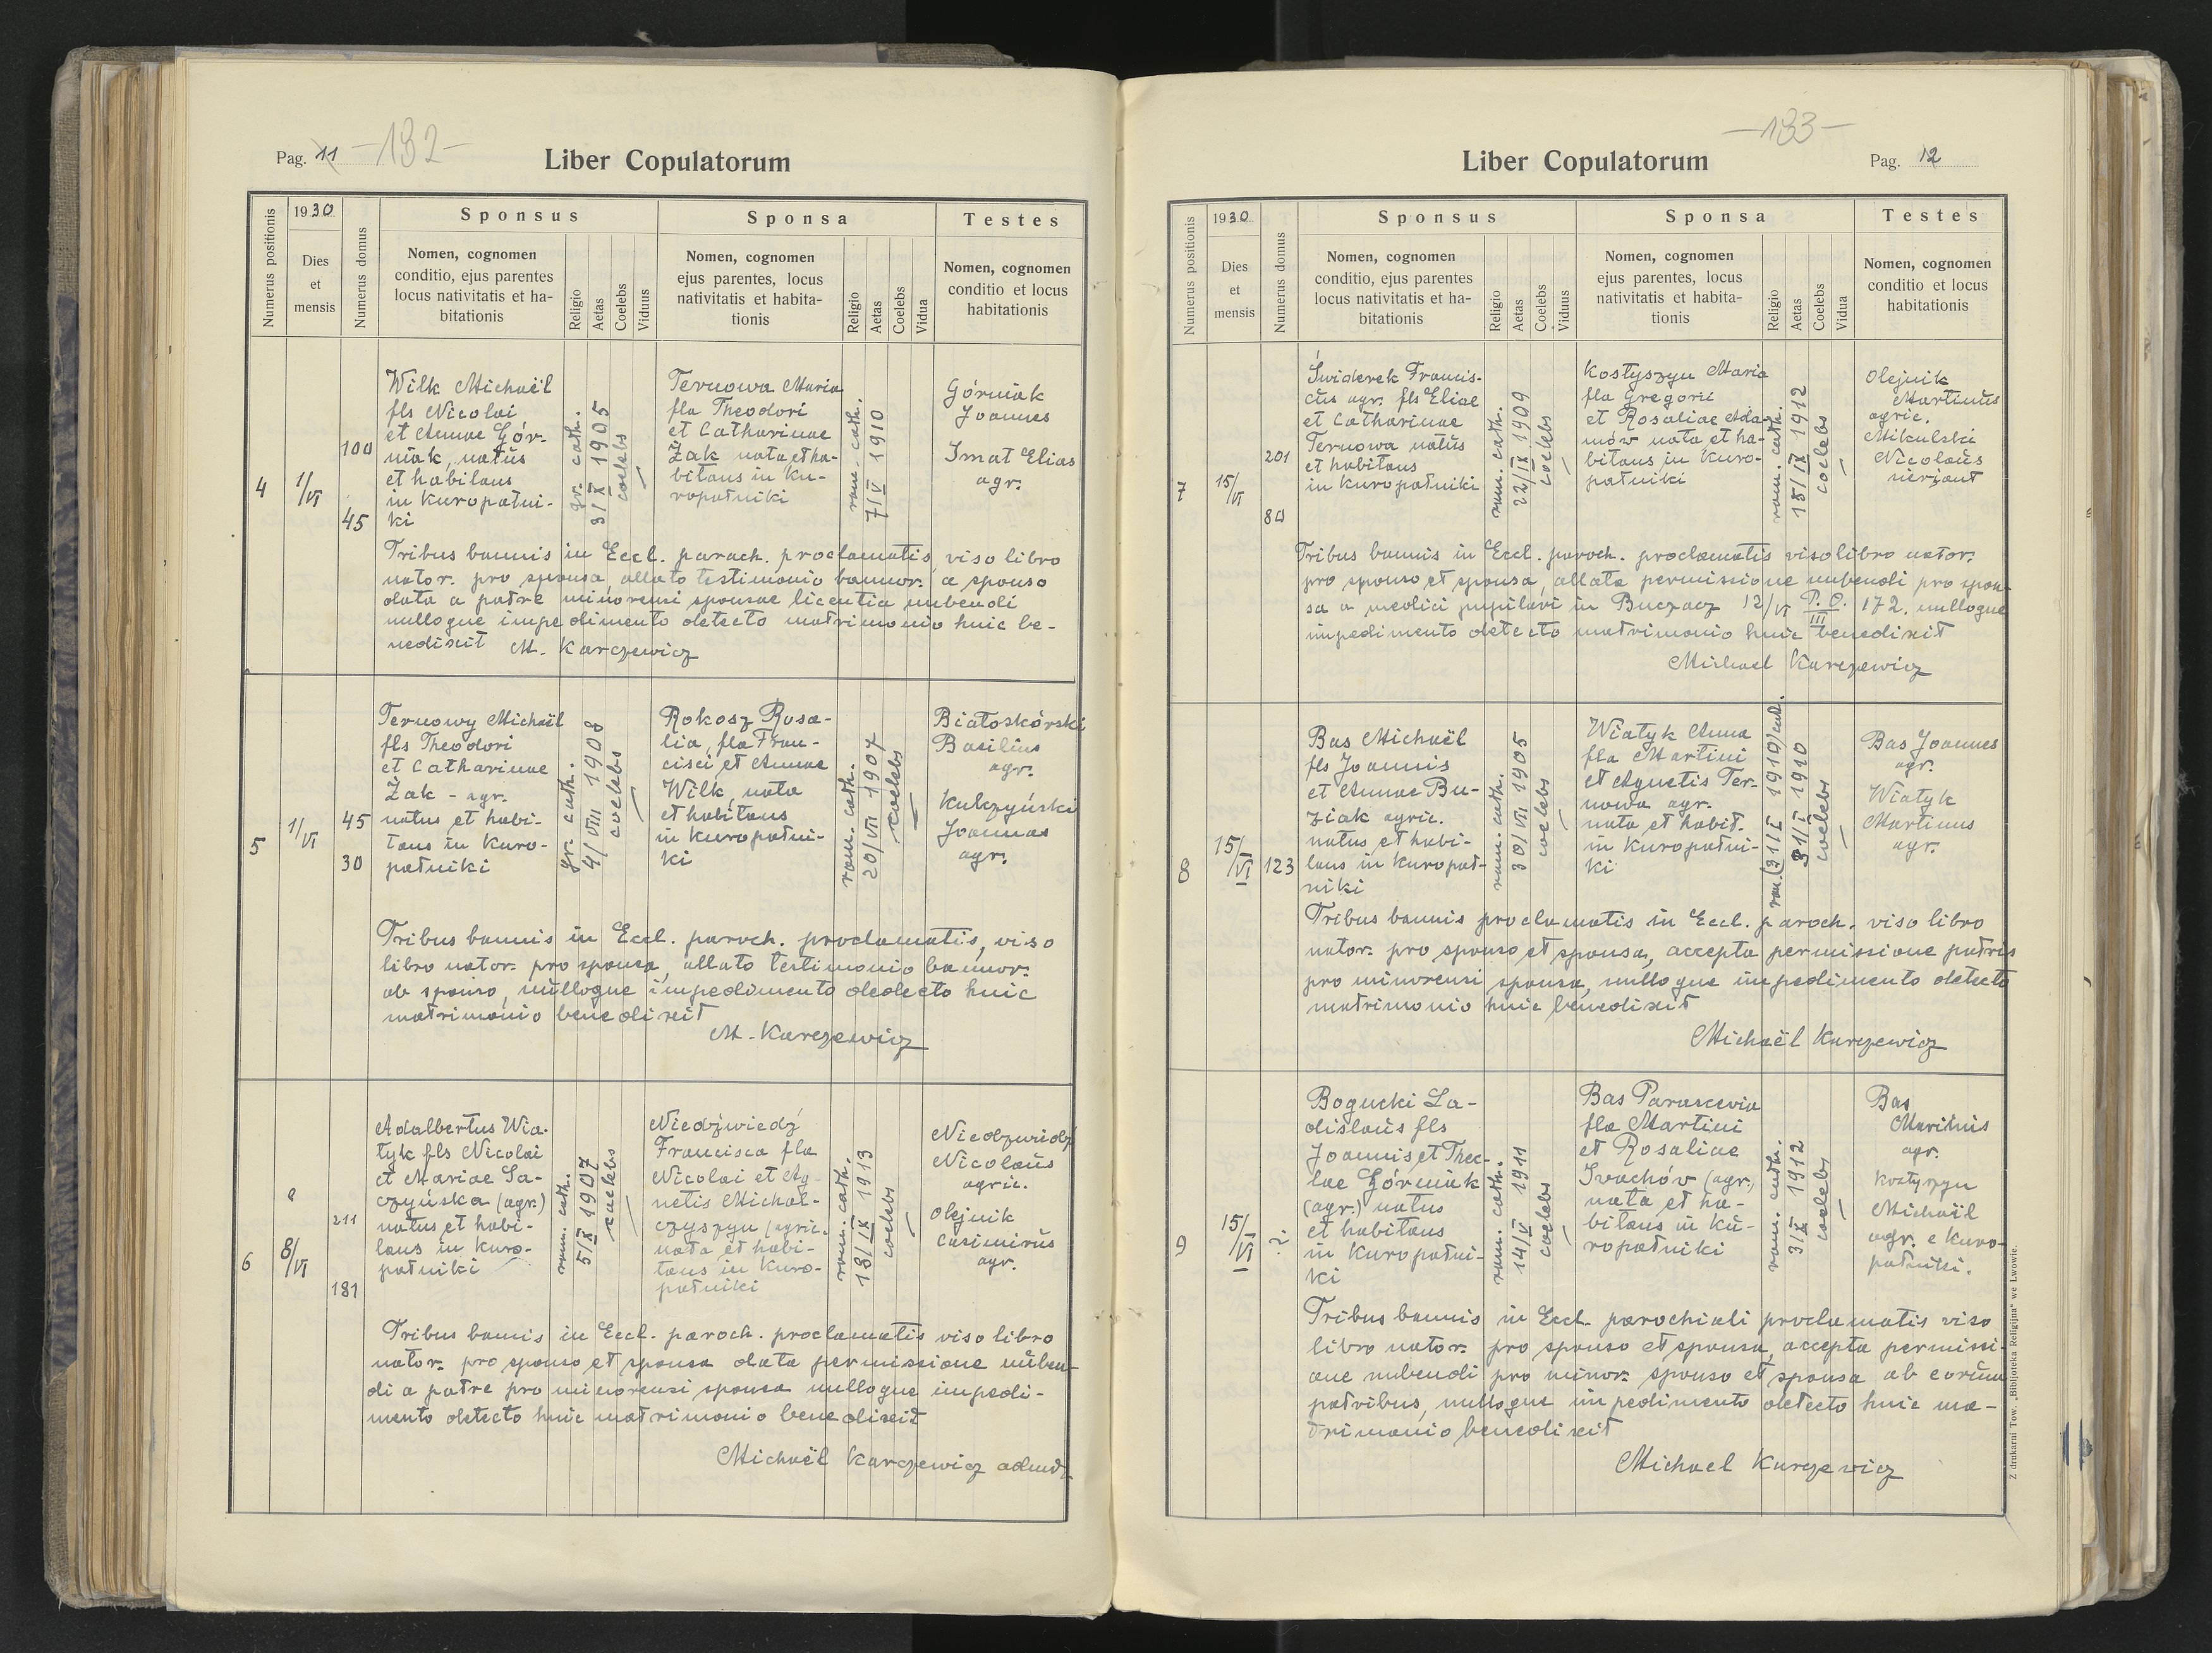 Pag. 11 -132-
Liber Copulatorum
Numerus positionis
1930
Dies
et
mensis
Numerus domus
Sponsus
Nomen, cognomen
conditio, ejus parentes
locus nativitatis et ha-
bitationis
Religio
Aetas
Coelebs
Viduus
Sponsa
Nomen, cognomen
ejus parentes, locus
nativitatis et habita-
tionis
Religio
Aetas
Coelebs
Vidua
Testes
Nomen, cognomen
conditio et locus
habitationis
4
1/VI
100
45
Wilk Michaël
fls Nicolai
et Annae Gór-
niak, natus
et habitans
in Kuropatni-
ki
gr. cath.
3/X 1905
coelebs
Ternowa Maria
fla Theodori
et Catharinae
Żak nata et ha-
bitans in Ku-
ropatniki
rom. cath.
7/V 1910
Górniak
Joannes
Smat Elias
agr.
Tribus bannis in Eccl. paroch. proclamatis, viso libro
nator. pro sponsa, allato testimonio bannor. a sponso
data a patre minorensi sponsae licentia nubendi
nulloque impedimento detecto matrimonio huic be-
nedixit M. Karczewicz
5
1/VI
45
30
Ternowy Michaël
fls Theodori
et Catharinae
Żak - agr.
natus et habi-
tans in Kuro-
patniki
gr. cath.
4/VIII 1908
coelebs
Rokosz Rosa-
lia, fla Fran-
cisci et Annae
Wilk, nata
et habitans
in Kuropatni-
ki
rom. cath.
20/VII 1907
coelebs
Białoskórski
Basilius
agr.
Kulczyński
Joannes
agr.
Tribus bannis in Eccl. paroch. proclamatis, viso
libro nator. pro sponsa, allato testimonio bannor.
ab sponso, nulloque impedimento dedecto huic
matrimonio benedixit
M. Karczewicz
6
8/VI
211
181
Adalbertus Wia-
tyk fls Nicolai
et Mariae Sa-
czyńska (agr.)
natus et habi-
tans in Kuro-
patniki
rom. cath.
5/X 1907
coelebs
Niedźwiedź
Francisca fla
Nicolai et Ag-
netis Michal-
czyszyn (agric.
nata et habi-
tans in Kuro-
patniki
rom. cath.
13/IX 1913
coelebs
Niedzwiedź
Nicolaüs
agric.
Olejnik
Casimirüs
agr.
Tribus bannis in Eccl. paroch. proclamatis viso libro
nator. pro sponso et sponsa data permissione nüben-
di a patre pro minorensi sponsa nulloque impedi-
mento detecto huic matrimonio benedixit
Michaël Karczewicz
-133-
Liber Copulatorum
Pag. 12
Numerus positionis
1930
Dies
et
mensis
Numerus domus
Sponsus
Nomen, cognomen
conditio, ejus parentes
locus nativitatis et ha-
bitationis
Religio
Aetas
Coelebs
Viduus
Sponsa
Nomen, cognomen
ejus parentes, locus
nativitatis et habita-
tionis
Religio
Aetas
Coelebs
Vidua
Testes
Nomen, cognomen
conditio et locus
habitationis
7
15/VI
201
Świderek Francis-
cüs agr. fls Eliae
et Catharinae
Ternowa natüs
et habitans
in Kuropatniki
rom. cath.
22/IX 1909
coelebs
Kostyszyn Maria
fla Gregorii
et Rosaliae Ada-
mów nata et ha-
bitans in Kuro-
patniki
rom. cath.
15/IX 1912
coelebs
Olejnik
Martinüs
agric.
Mikulski
Nicolaüs
Tribus bannis in Eccl. paroch. proclamatis viso libro nator.
pro sponso et sponsa, allata permissione nubendi pro spon-
sa a medici pupilari in Buczacz 12/VI P. III 172. nulloque
impedimento detecto matrimonio huic benedixit
Michael Karczewicz
8
15/VI
123
Bas Michaël
fls Joannis
et Annae Bu-
ziak agric.
natus et habi-
tans in Kuropat-
niki
rom. cath.
30/VII 1905
coelebs
Wiatyk Anna
fla Martini
et Agnetis Ter-
nowa agr.
nata et habit.
in Kuropatni-
ki
rom. (31/I 1910) cath.
31/I 1910
coelebs
Bas Joannes
agr.
Wiatyk
Martinus
agr.
Tribus bannis proclamatis in Eccl. paroch. viso libro
nator. pro sponso et sponsa, accepta permissione patris
pro minorensi sponsa, nulloque impedimento detecto
matrimonio huic benedixit
Michaël Karczewicz
9
15/VI
?
Bogucki La-
dislaüs fls
Joannis et Thec-
lae Górniak
(agr.) natus
et habitans
in Kuropatni-
ki
rom. cath.
14/V 1911
coelebs
Bas Parascevia
fla Martini
et Rosaliae
Iwachów (agr.)
nata et ha-
bitans in Ku-
ropatniki
rom. cath.
3/X 1912
coelebs
Bas
Martinus
agr.
Kostyszyn
Michaël
agr. e Kuro-
patniki.
Tribus bannis in Eccl. parochiali proclamatis viso
libro nator. pro sponso et sponsa, accepta permissi-
one nubendi pro minor. sponso et sponsa ab eorüm
patribus, nulloque impedimento detecto huic ma-
trimonio benedixit
Michael Karczewicz
Z drukarni Tow. „Bibljoteka Religijna" we Lwowie.